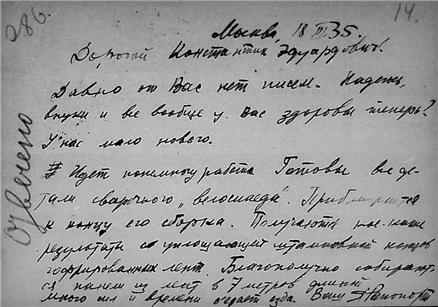 286.
14.
Москва, 18 III 35.
Дорогой Константин Эдуардович!
Давно от Вас нет писем. Надежд,
внуки и все вообще у Вас здоровы теперь?
У нас мало нового.
Идет понемногу работа Готовы все де-
тали сварочного „велосипеда". Приближается
к концу его сборка. Получаются кое-какие
результаты со сплющающий штамповкой концов
гофрированных лент. Благополучно собирают
ся в 7 метров длины.
Много сил и времени берет
Ваш Я Рапопорт
Отвечено